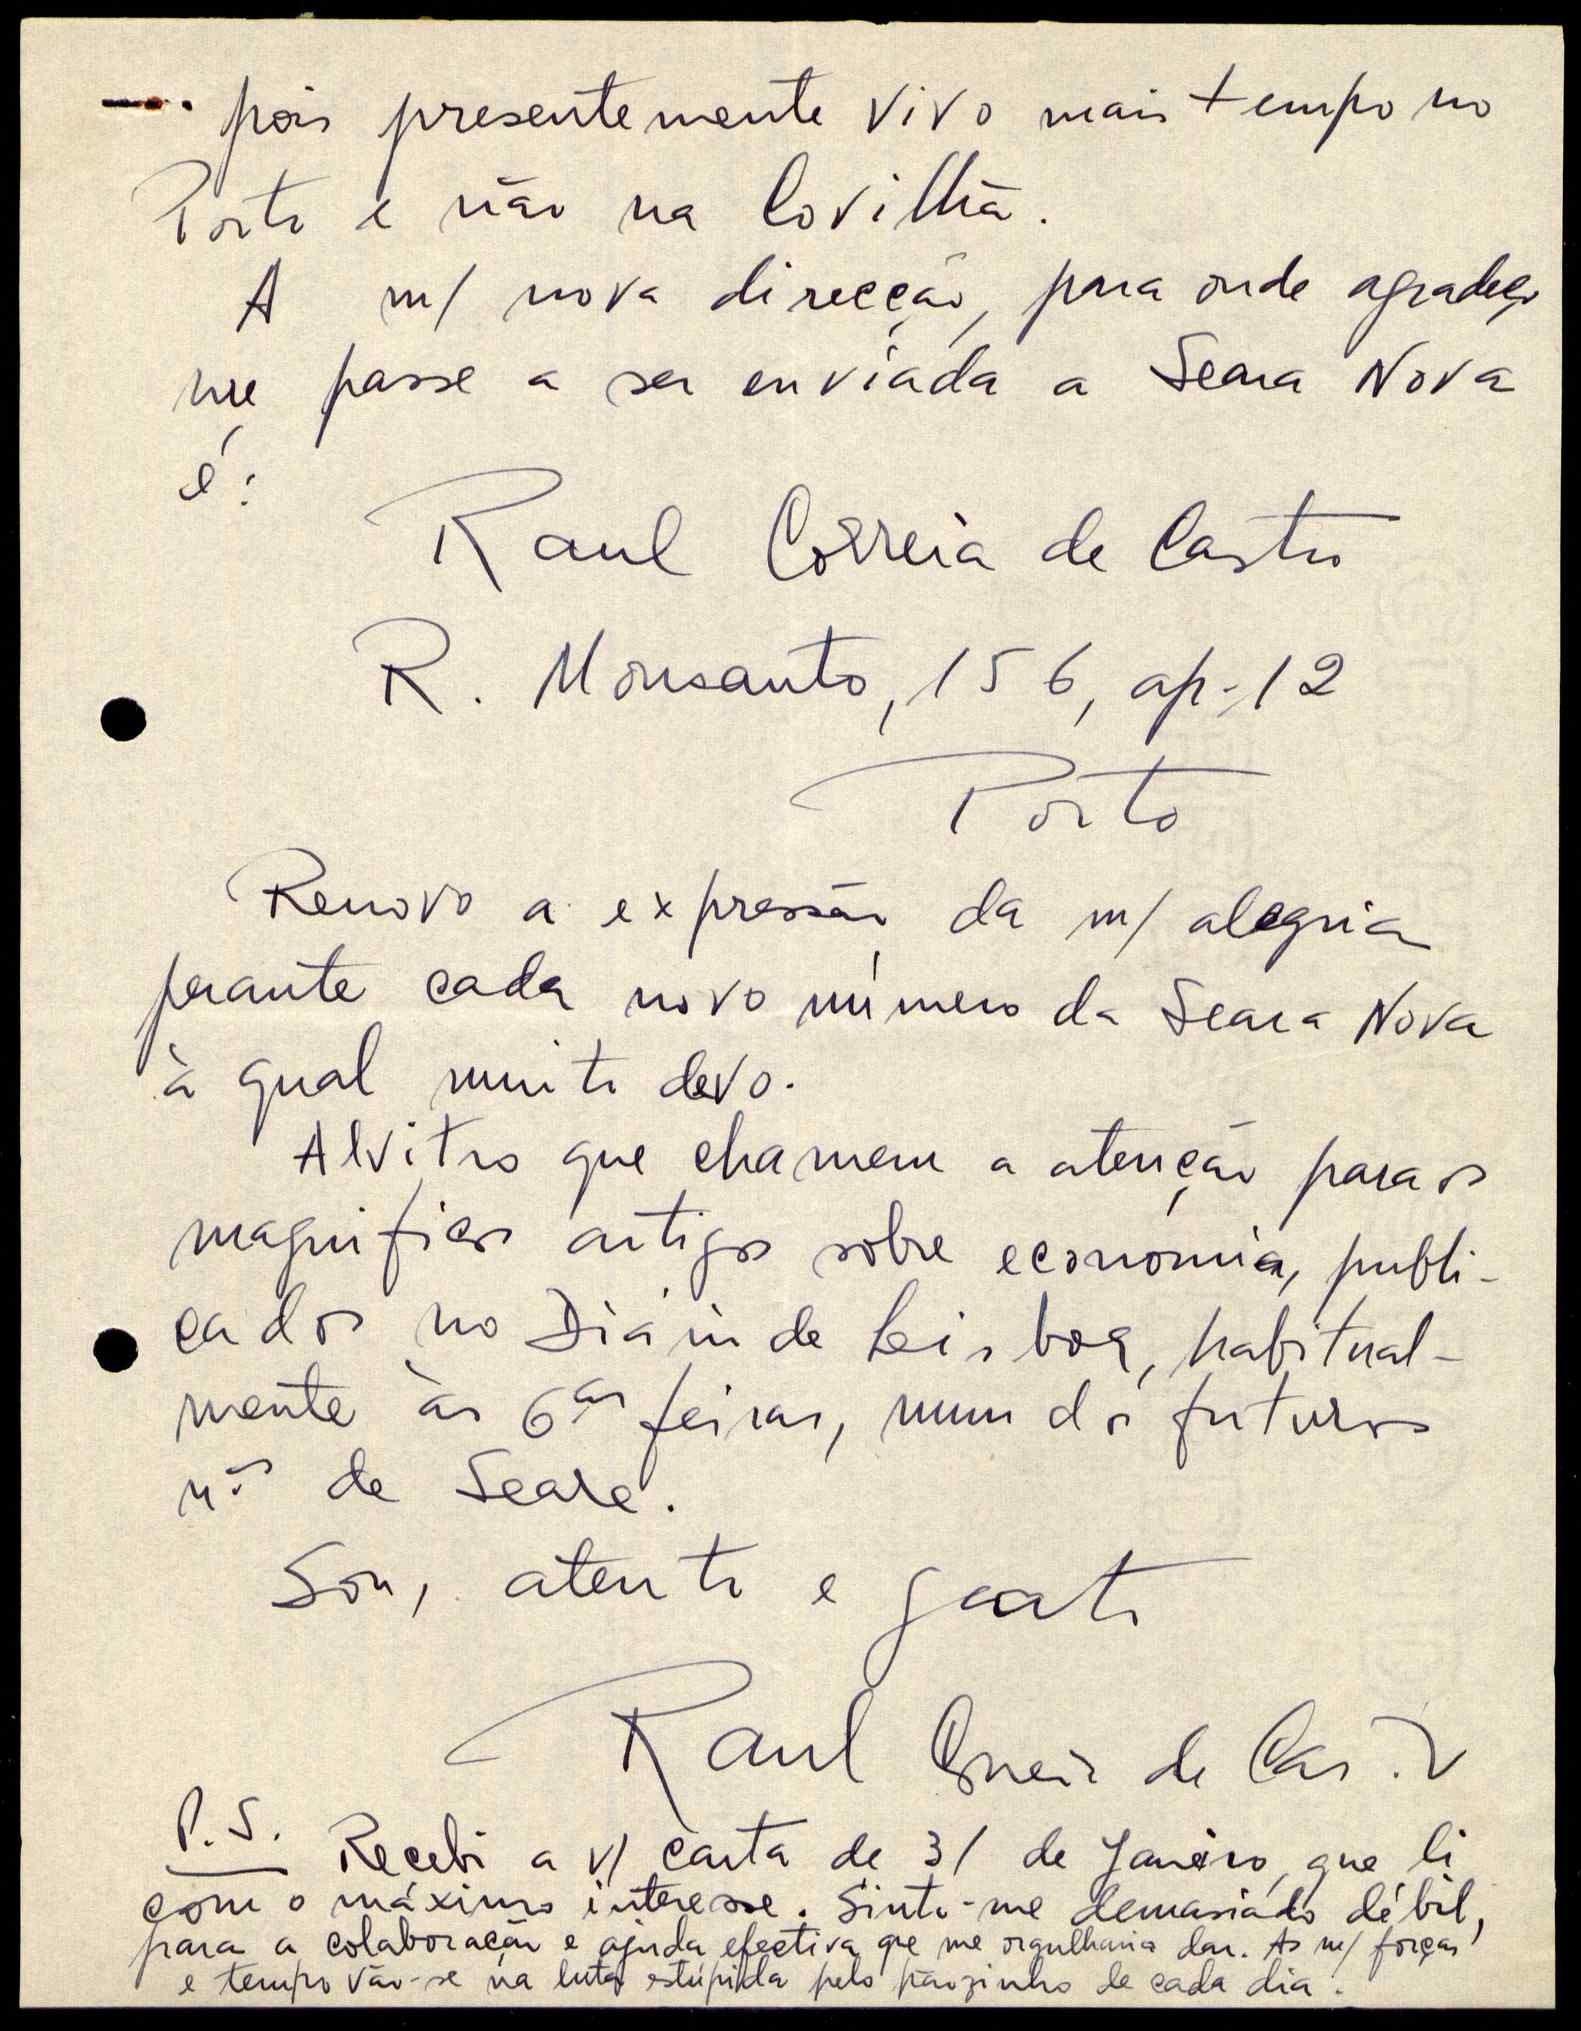 pois presentemente vivo mais tempo no
Porto e não na Covilhã.
A m/ nova direcção, para onde agradeço
me passe a ser enviada a Seara Nova
é:
Raul Correia de Castro
R. Monsanto, 156, ap. 12
Porto
Renovo a expressão da m/ alegria
perante cada novo número da Seara Nova
à qual muito devo.
Alvitro que chamem a atenção para os
magnificos artigos sobre economia, publi-
cados no Diário de Lisboa, habitual-
mente às 6as feiras, num dos futuros
nos de Seara.
Sou, atento e grato
Raul Correia de Castro
P.S. Recebi a v/ carta de 31 de Janeiro, que li
com o máximo interesse. Sinto-me demasiado débil,
para a colaboração e ajuda efectiva que me orgulharia dar. As m/ forças
e tempo vão-se na luta estúpida pelo pãozinho de cada dia.